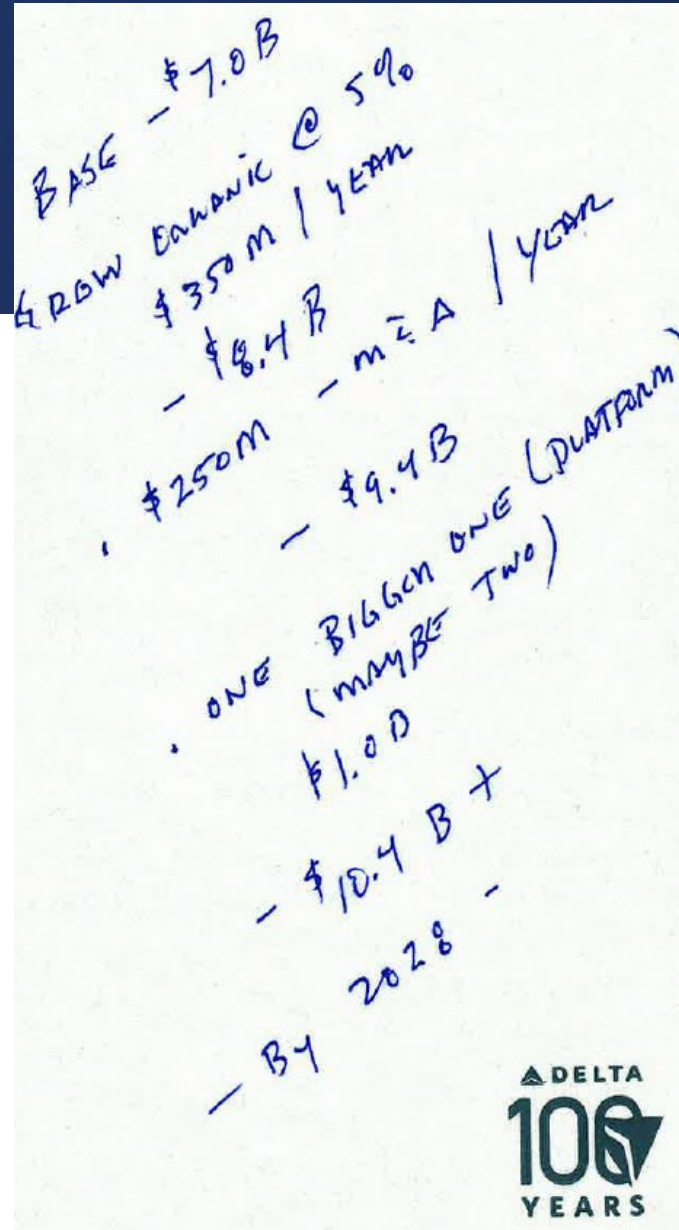 BASE – $7.0B
GROW ORGANIC @ 5%
$350M / YEAR
– $8.4B
• $250M – M&A / YEAR
– $9.4B
• ONE BIGGER ONE (PLATFORM)
(MAYBE TWO)
$1.0B
– $10.4B+
– BY 2028 –
DELTA
100
YEARS